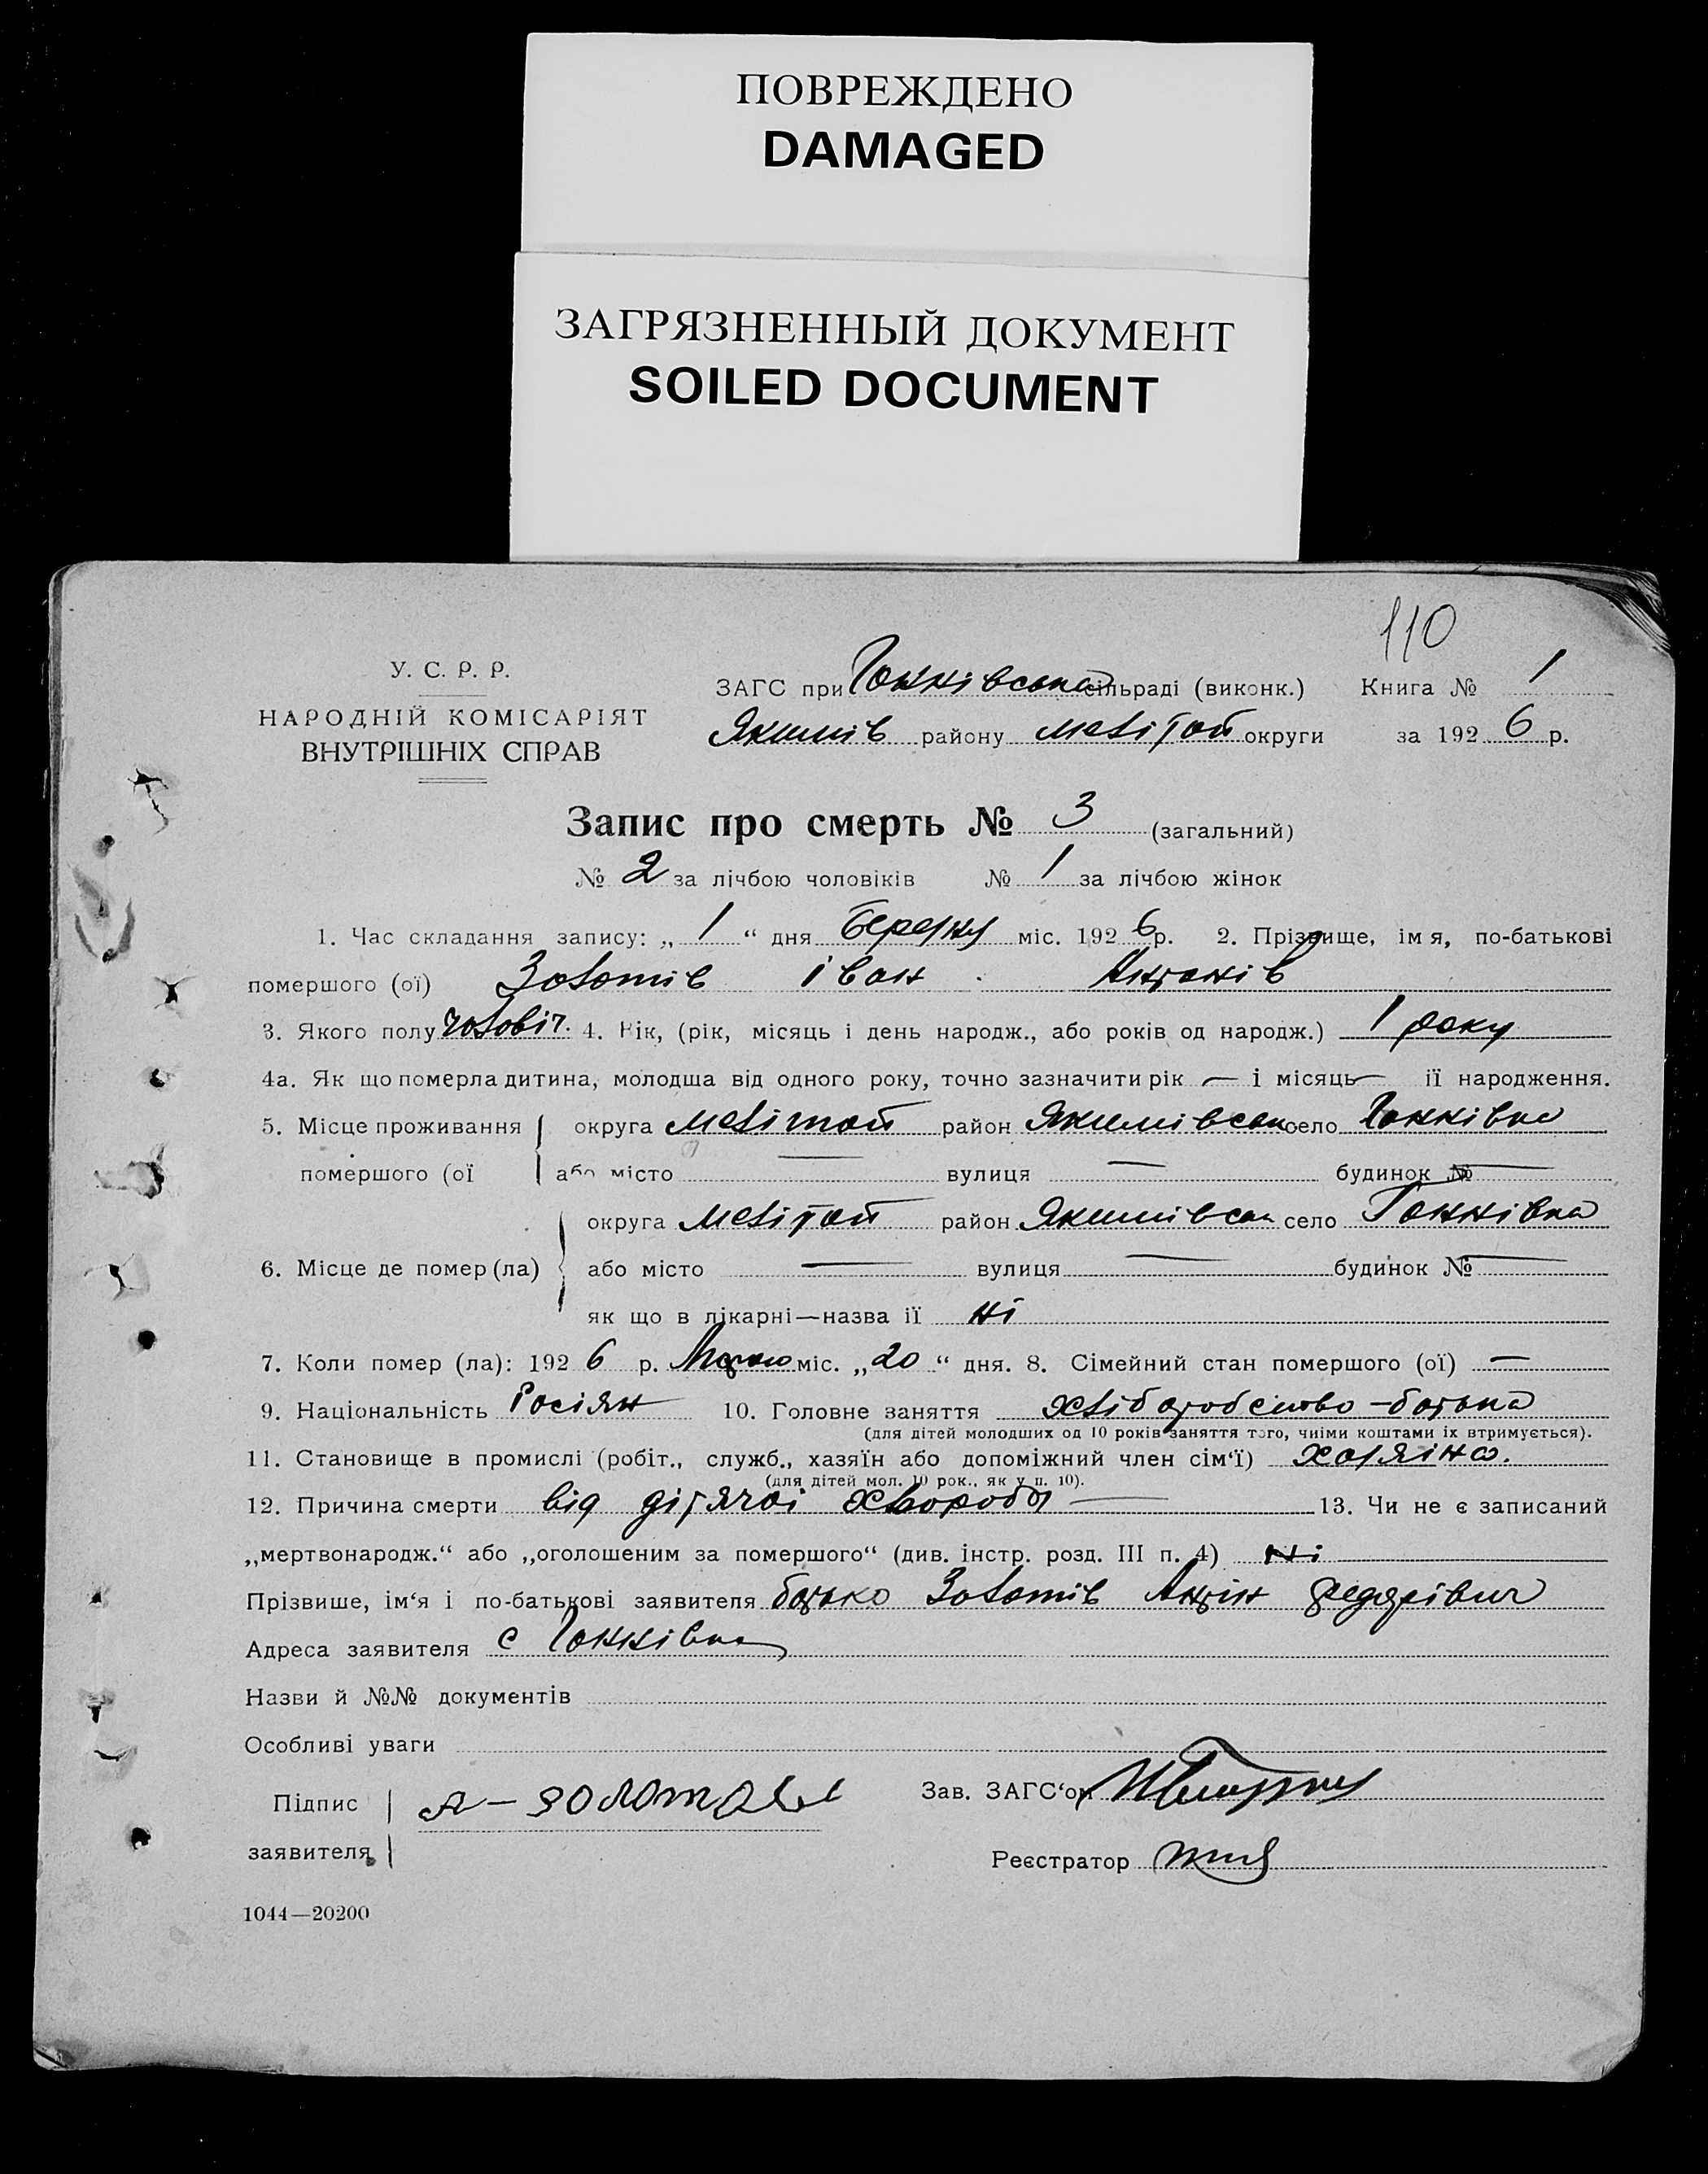 ПОВРЕЖДЕНО
DAMAGED
ЗАГРЯЗНЕННЫЙ ДОКУМЕНТ
SOILED DOCUMENT
110
У. С. Р. Р.
НАРОДНІЙ КОМІСАРІЯТ
ВНУТРІШНІХ СПРАВ
ЗАГС при Ганнівська сільраді (виконк.) Книга № 1
Якимів району Мелітоп округи за 1926 р.
Запис про смерть № 3 (загальний)
№ 2 за лічбою чоловіків № 1 за лічбою жінок
1. Час складання запису: „ 1 “ дня березня міс. 1926 р. 2. Прізвище, імя, по-батькові
помершого (ої) Золотів Іван
3. Якого полу чоловіч. 4. Вік, (рік, місяць і день народж., або років од народж.) 1 року
4а. Як що померла дитина, молодша від одного року, точно зазначити рік — і місяць — її народження.
5. Місце проживання округа Мелітоп район Якимівськ село Ганнівка
помершого (ої або місто — вулиця — будинок № —
округа Мелітоп район Якимівськ село Ганнівка
6. Місце де помер (ла) або місто — вулиця — будинок № —
як що в лікарні—назва ії ні
7. Коли помер (ла): 1926 р. міс. „20“ дня. 8. Сімейний стан помершого (ої) —
9. Національність Росіян 10. Головне заняття хліборобство - батька
(для дітей молодших од 10 років заняття того, чиїми коштами їх втримується).
11. Становище в промислі (робіт., служб., хазяїн або допоміжний член сім‘ї) хазяіна.
(для дітей мол. 10 рок., як у п. 10).
12. Причина смерти від дітячоі хвороби — 13. Чи не є записаний
„мертвонародж.“ або „оголошеним за помершого“ (див. інстр. розд. III п. 4) ні
Прізвише, ім‘я і по-батькові заявителя батько Золотів
Адреса заявителя с Ганнівка
Назви й №№ документів
Особливі уваги
Підпис Зав. ЗАГС‘ом
заявителя Реєстратор
1044—20200